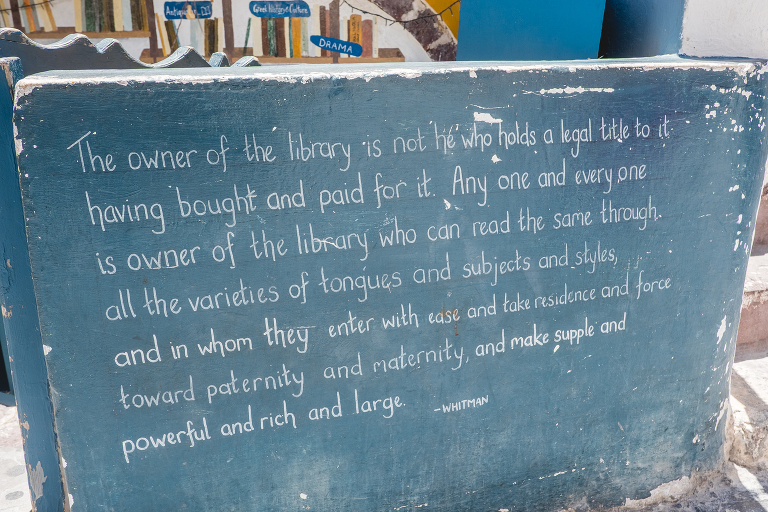 Antiquity, D.I
Civil History & Culture
DRAMA
The owner of the library is not he who holds a legal title to it
having bought and paid for it. Any one and every one
is owner of the library who can read the same through
all the varieties of tongues and subjects and styles,
and in whom they enter with ease and take residence and force
toward paternity and maternity, and make supple and
powerful and rich and large. -WHITMAN